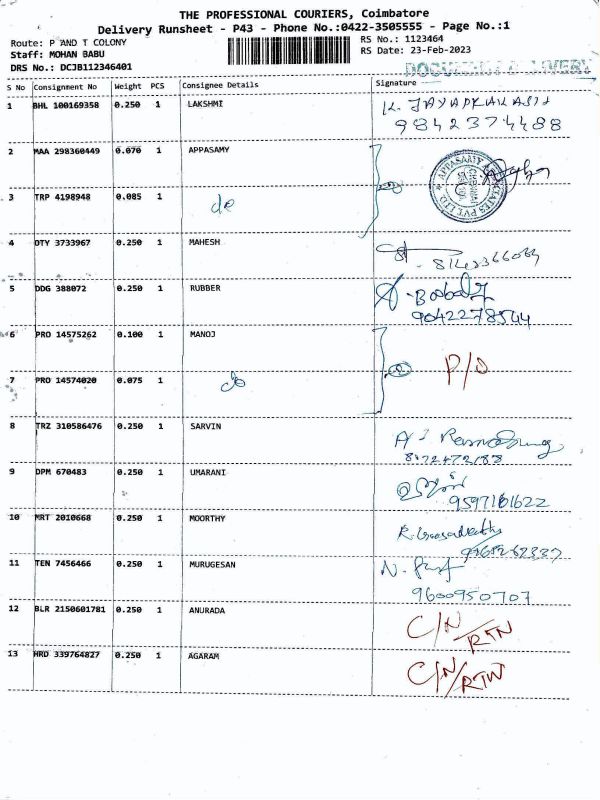 THE PROFESSIONAL COURIERS, Coimbatore
Delivery Runsheet - P43 - Phone No.:0422-3505555 - Page No.:1
Route: P AND T COLONY RS No.: 1123464
Staff: MOHAN BABU RS Date: 23-Feb-2023
DRS No.: DCJB112346401
S No Consignment No Weight PCS Consignee Details Signature
1 BHL 100169358 0.250 1 LAKSHMI
9842374488
2 MAA 298360449 0.070 1 APPASAMY
3 TRP 4198948 0.085 1 do
4 OTY 3733967 0.250 1 MAHESH
5 DDG 388072 0.250 1 RUBBER
9042278544
6 PRO 14575262 0.100 1 MANOJ P/O
7 PRO 14574020 0.075 1 do
8 TRZ 310586476 0.250 1 SARVIN
9 DPM 670483 0.250 1 UMARANI
9597161622
10 MRT 2010668 0.250 1 MOORTHY
11 TEN 7456466 0.250 1 MURUGESAN
9600950707
12 BLR 2150601781 0.250 1 ANURADA C/N/RTN
13 HRD 339764827 0.250 1 AGARAM C/N/RTN